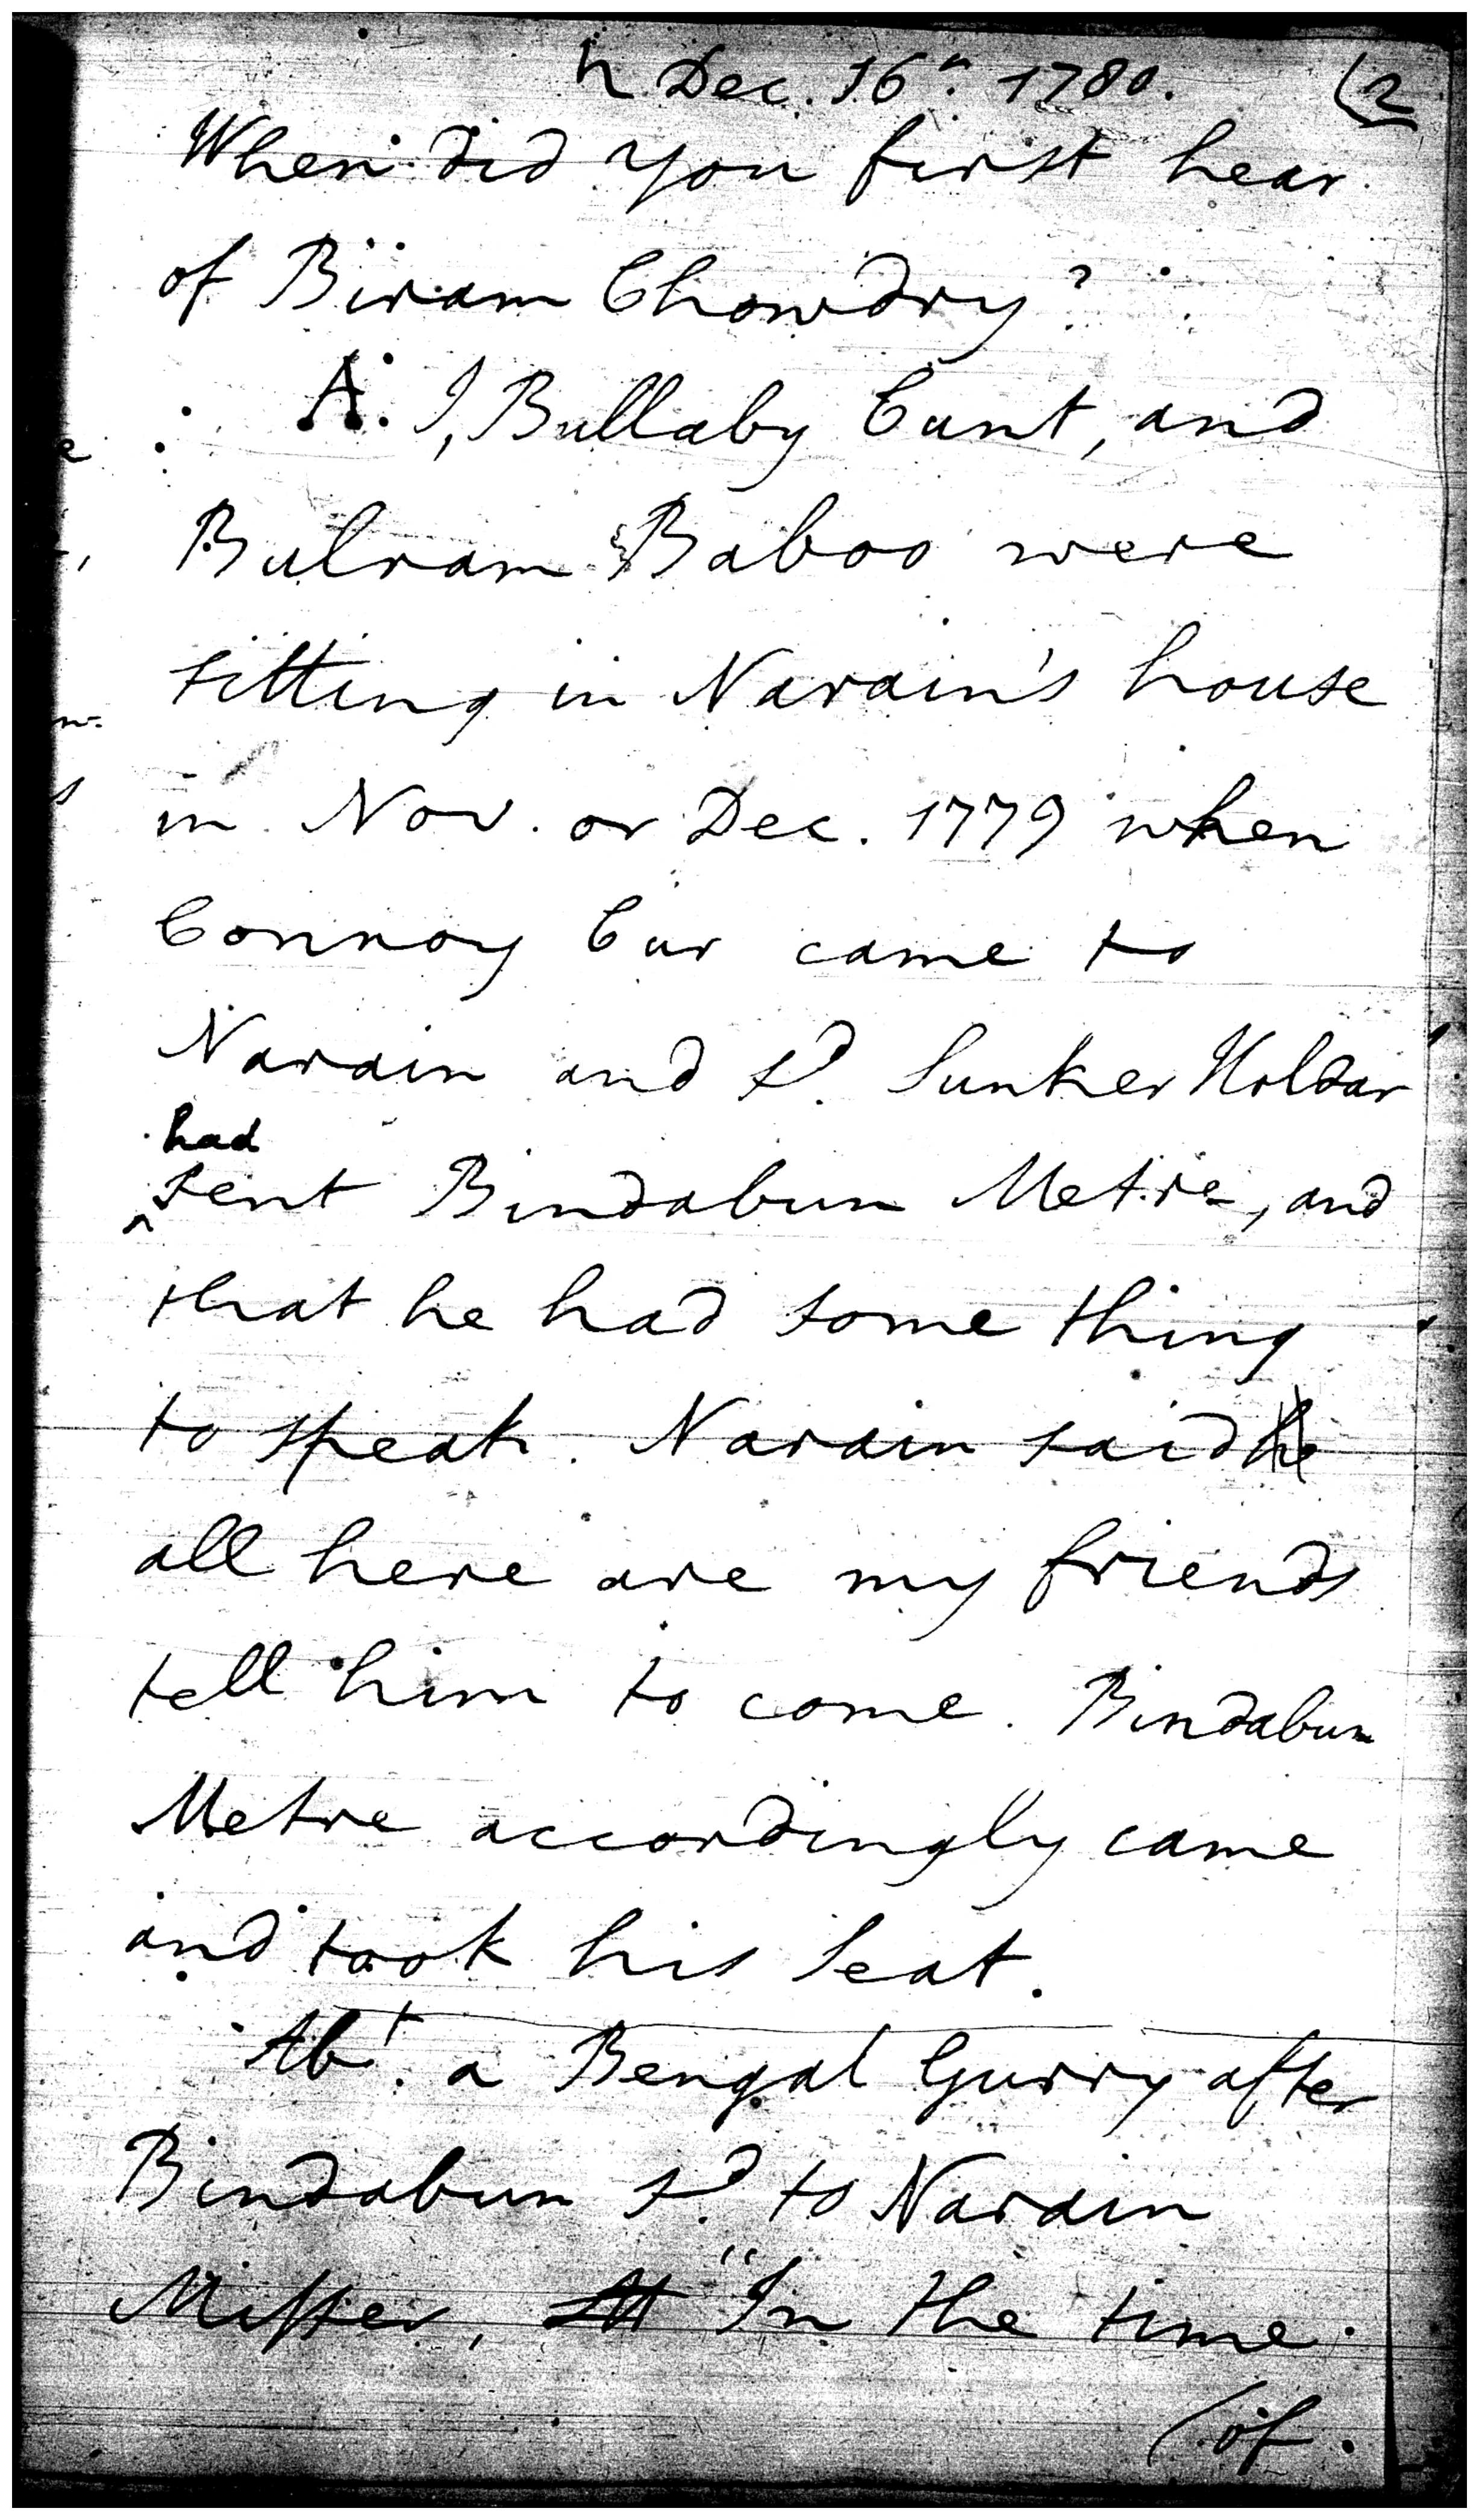 ♄ Dec. 16th. 1780. (2
When did you first hear
of Biram Chowdry?
A. I, Bullaby Cunt, and
Bulram Baboo were
sitting in Narain's house
in Nov. or Dec. 1779 when
Connoy Cur came to
Narain and sd. Sunker Holdar
had
^sent Bindabun Metre, and
that he had some thing
to speak. Narain said
all here are my friends
tell him to come. Bindabun
Metre accordingly came
and took his seat.
Abt. a Bengal Gurry after
Bindabun sd. to Narain
Misser, "In the time
(of